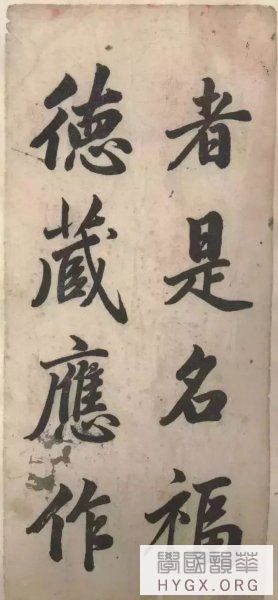 者是名福
德蔵應作
華韻國學
HYGX.ORG